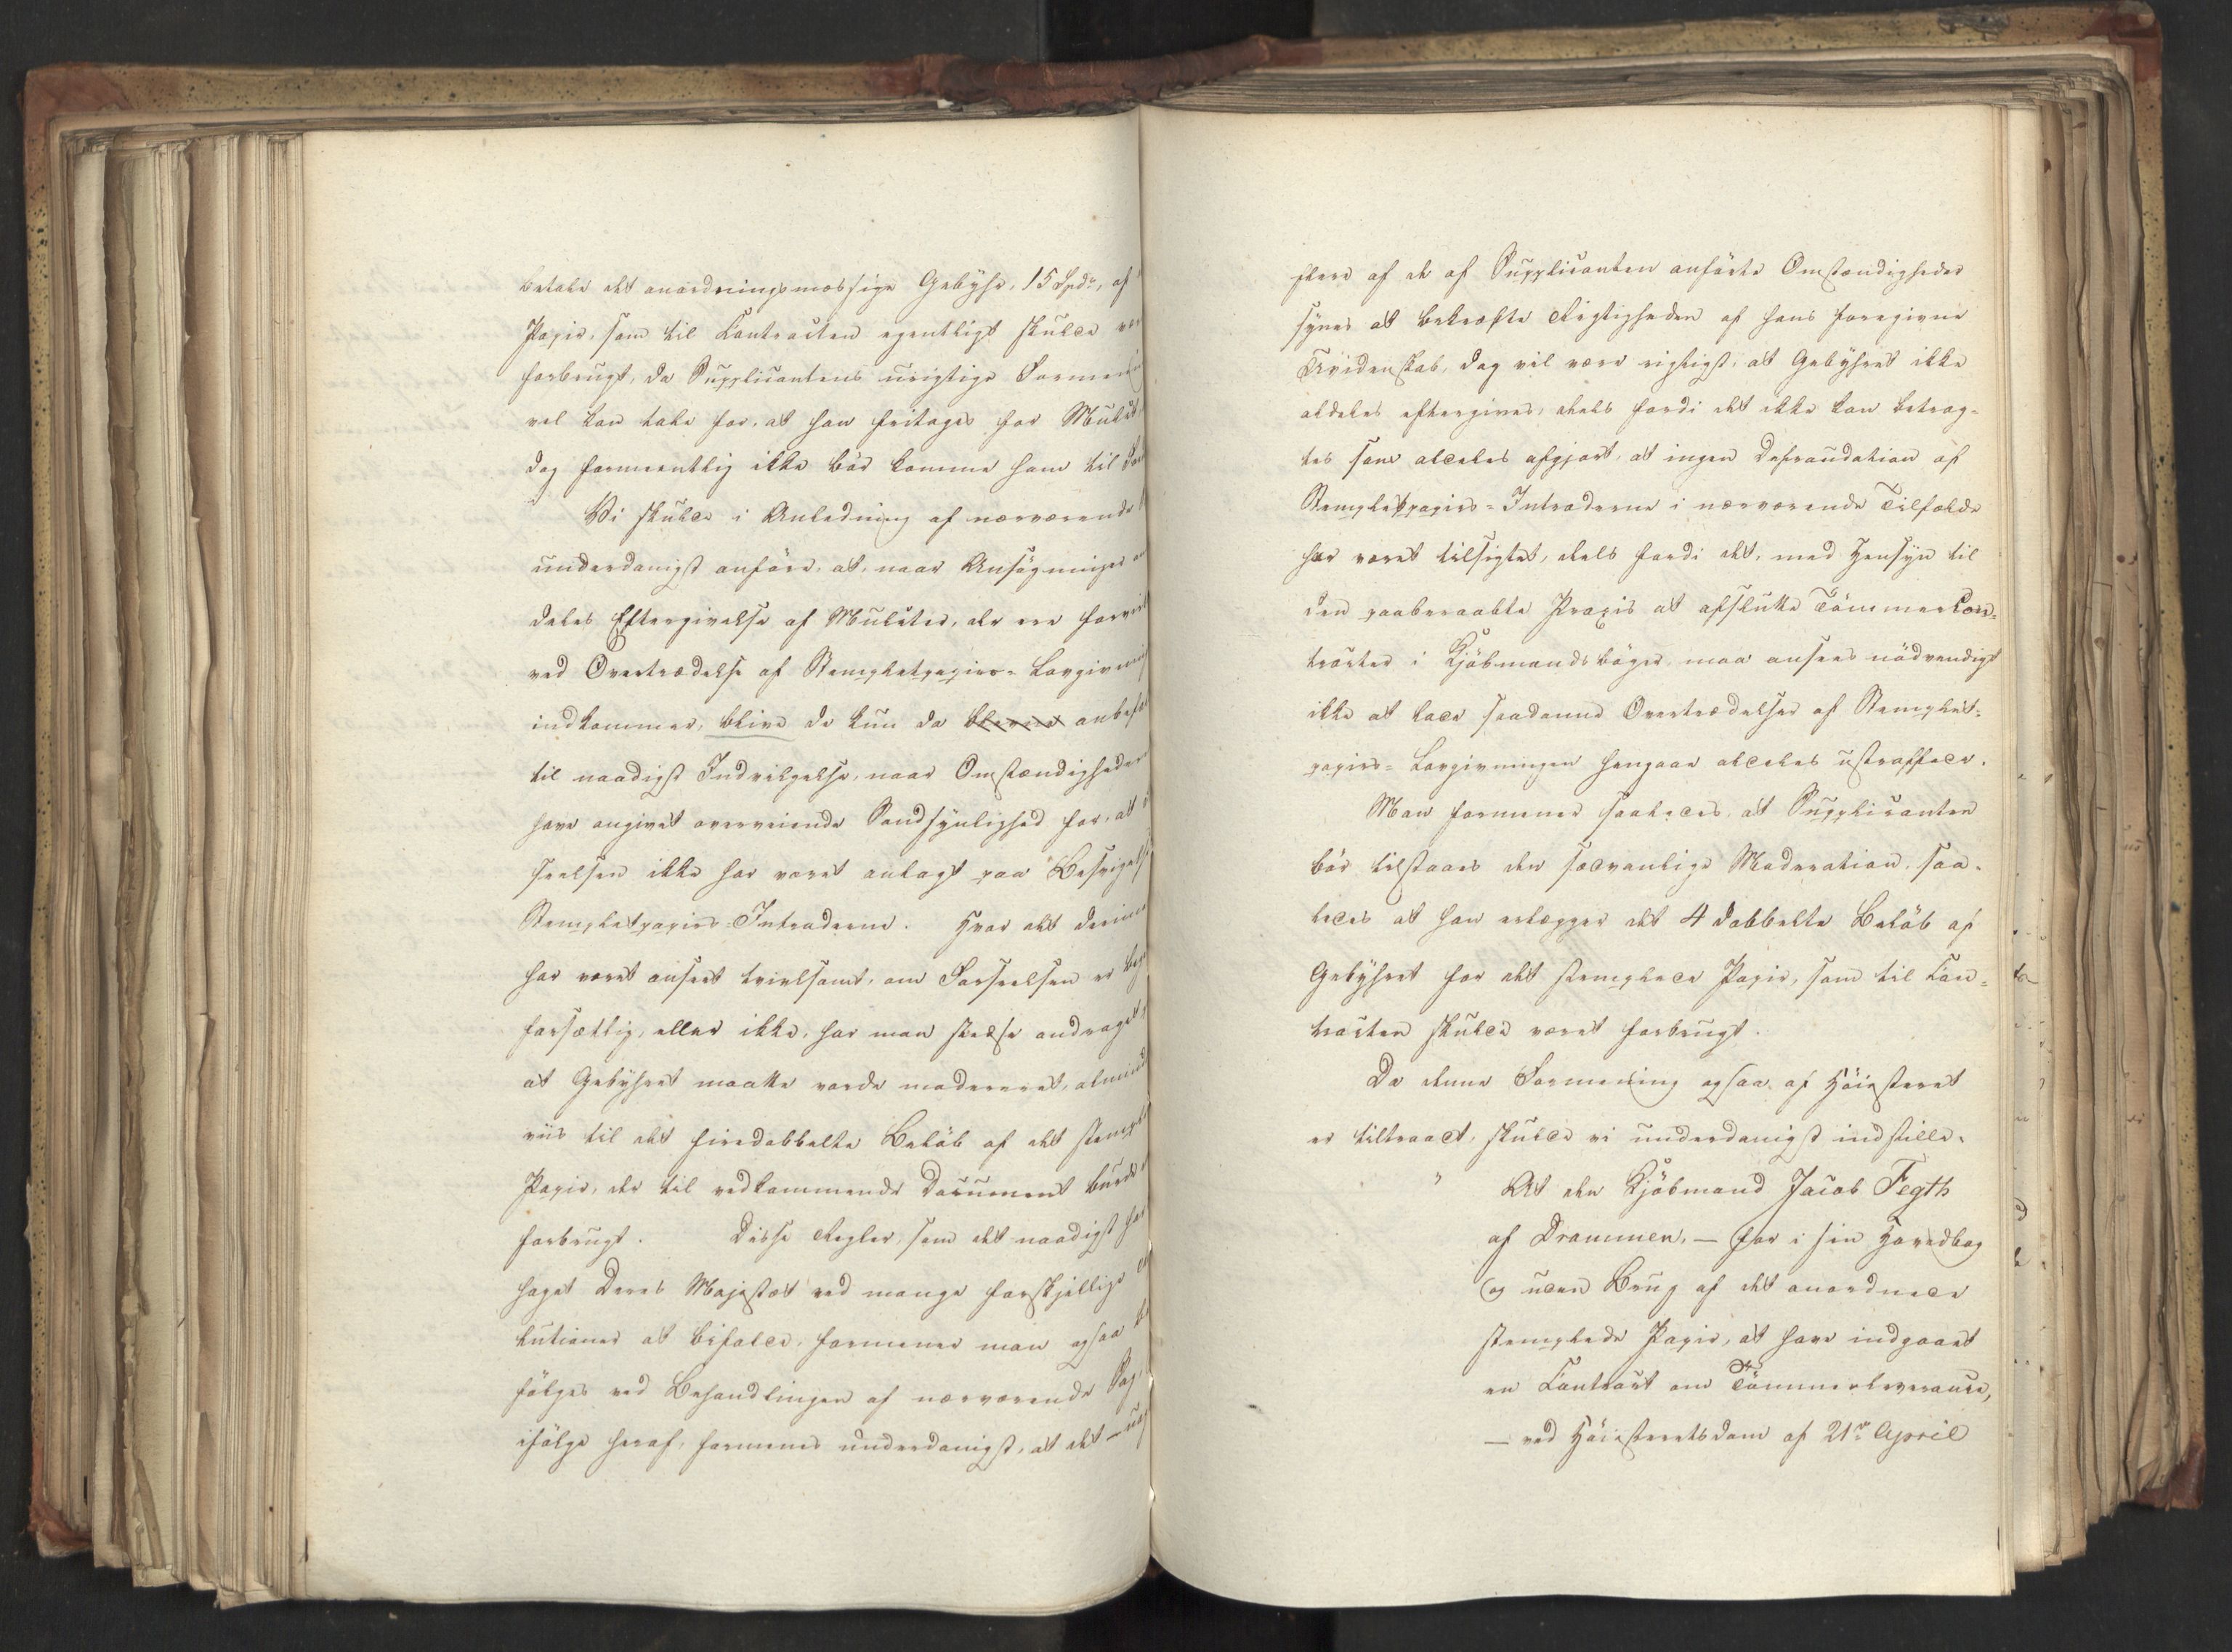 betale det anordningsmæssige Gebyhr, 15 Spd, af
Papir, som til Contracten egentligt skulde vær
forbrugt, da Supplicantens urigtige Formeni
vel kan tale for, at han fritages for Mulct
dog formeentlig ikke bör komme ham til
Vi skulde i Anledning af nærværende
underdanigst anföre, at, naar Ansögninger
deles Eftergivelse af Mulcter, der ere forvirk
ved Overtrædelse af Stempletpapirs-Lovgivning
indkommer, blive de kun da blevne anbefal
til naadigst Indvilgelse, naar Omstændigheder
have angivet overveiende Sandsynlighed for, at
seelsen ikke har været anlagt paa Besvigelse
Stempletpapirs-Intraderne. Hvor det derimo
har været anseet tvivlsomt, om Forseelsen er beg
forsætlig, eller ikke, har man stedse andraget
at Gebyhret maatte vorde modereret, almind
viis til det firedobbelte Belöb af det stempl
Papir, der til vedkommende Document burde
forbrugt. Disse Regler, som det naadigst har
haget Deres Majestæt ved mange forskjellige
lutioner at bifalde, formener man ogsaa
fölges ved Behandlingen af nærværende Sag,
ifölge heraf, formenes underdanigst, at det – uag
flere af de af Supplicanten anförte Omstændigheder
synes at bekræfte Rigtigheden af hans foregivne
Uvidenskab, dog vil være rigtigst, at Gebyhret ikke
aldeles eftergives, deels fordi det ikke kan betrag-
tes som aldeles afgjort, at ingen Defraudation af
Stempletpapirs-Intraderne i nærværende Tilfælde
har været tilsigtet, deels fordi det, med Hensyn til
den paaberaabte Praxis at afslutte Tömmercon-
tracter i Kjöbmandsböger, maa ansees nödvendigt
ikke at lade saadanne Overtrædelser af Stemplet-
papirs-Lovgivningen hengaae aldeles ustraffede.
Man formener saaledes, at Supplicanten
bör tilstaaes den sædvanlige Moderation, saa-
ledes at han erlægger det 4 dobbelte Belöb af
Gebyhret for det stemplede Papir, som til Con-
tracten skulde været forbrugt.
Da denne Formening ogsaa af Höiesteret
er tiltraadt, skulde vi underdanigst indstille.
" At den Kjöbmand Jacob Fegth
af Drammen, – for i sin Hovedbog
og uden Brug af det anordnede
stemplede Papir, at have indgaaet
en Contract om Tömmerleverance,
– ved Höiesteretsdom af 21de April